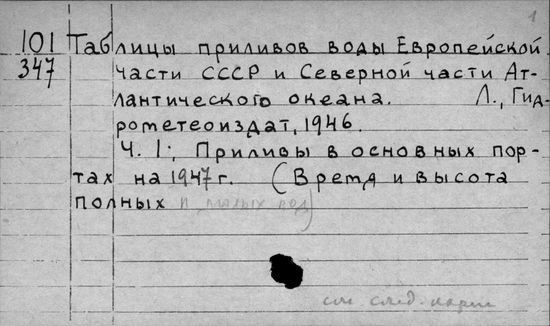 1
101 Таблицы приливов воды Европейской
347 части СССР и Северной части Ат-
лантического океана. Л., Гид-
рометеоиздат, 1946.
Ч. I: Приливы в основных пор-
тах на 1947 г. (Время и высота
полных и малых вод)
см. след. карт